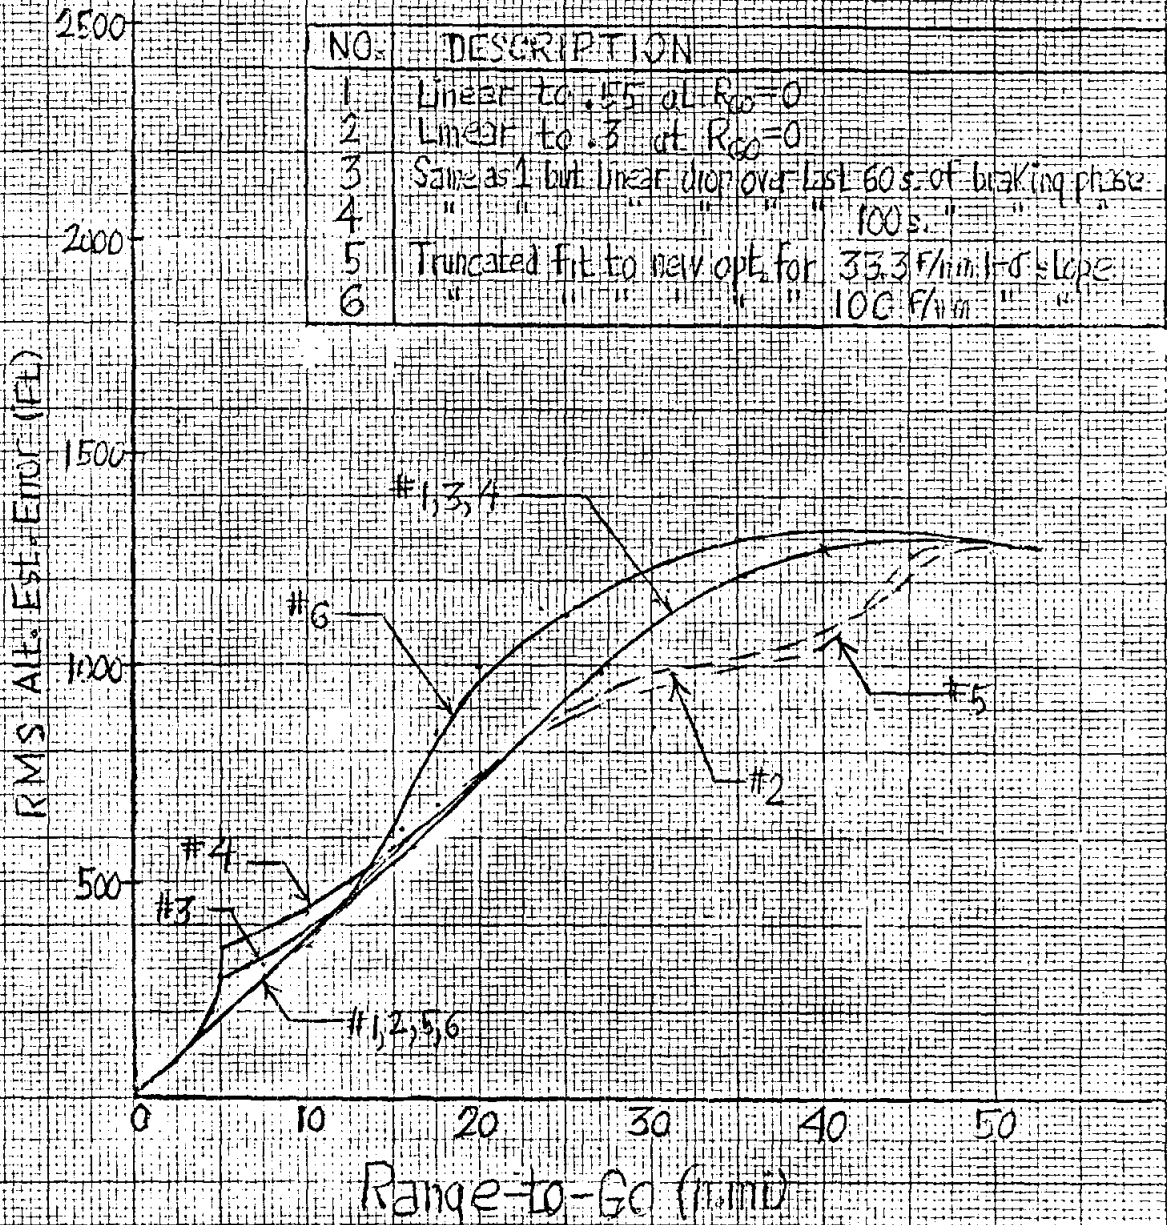 2500
NO. DESCRIPTION
1 Linear to .55 at RGO=0
2 Linear to .3 at RGO=0
3 Same as 1 but linear drop over last 60 s. of braking phase
4 " " " " " " 100 s. " " "
5 Truncated fit to new opt. for 33.3 f/nmi 1-σ slope
6 " " " " " " 100 f/nm " "
2000
1500
1000
500
RMS Alt. Est. Error (Ft)
#1,3,4
#6
#5
#2
#4
#3
#1,2,5,6
0 10 20 30 40 50
Range-to-Go (n.mi)